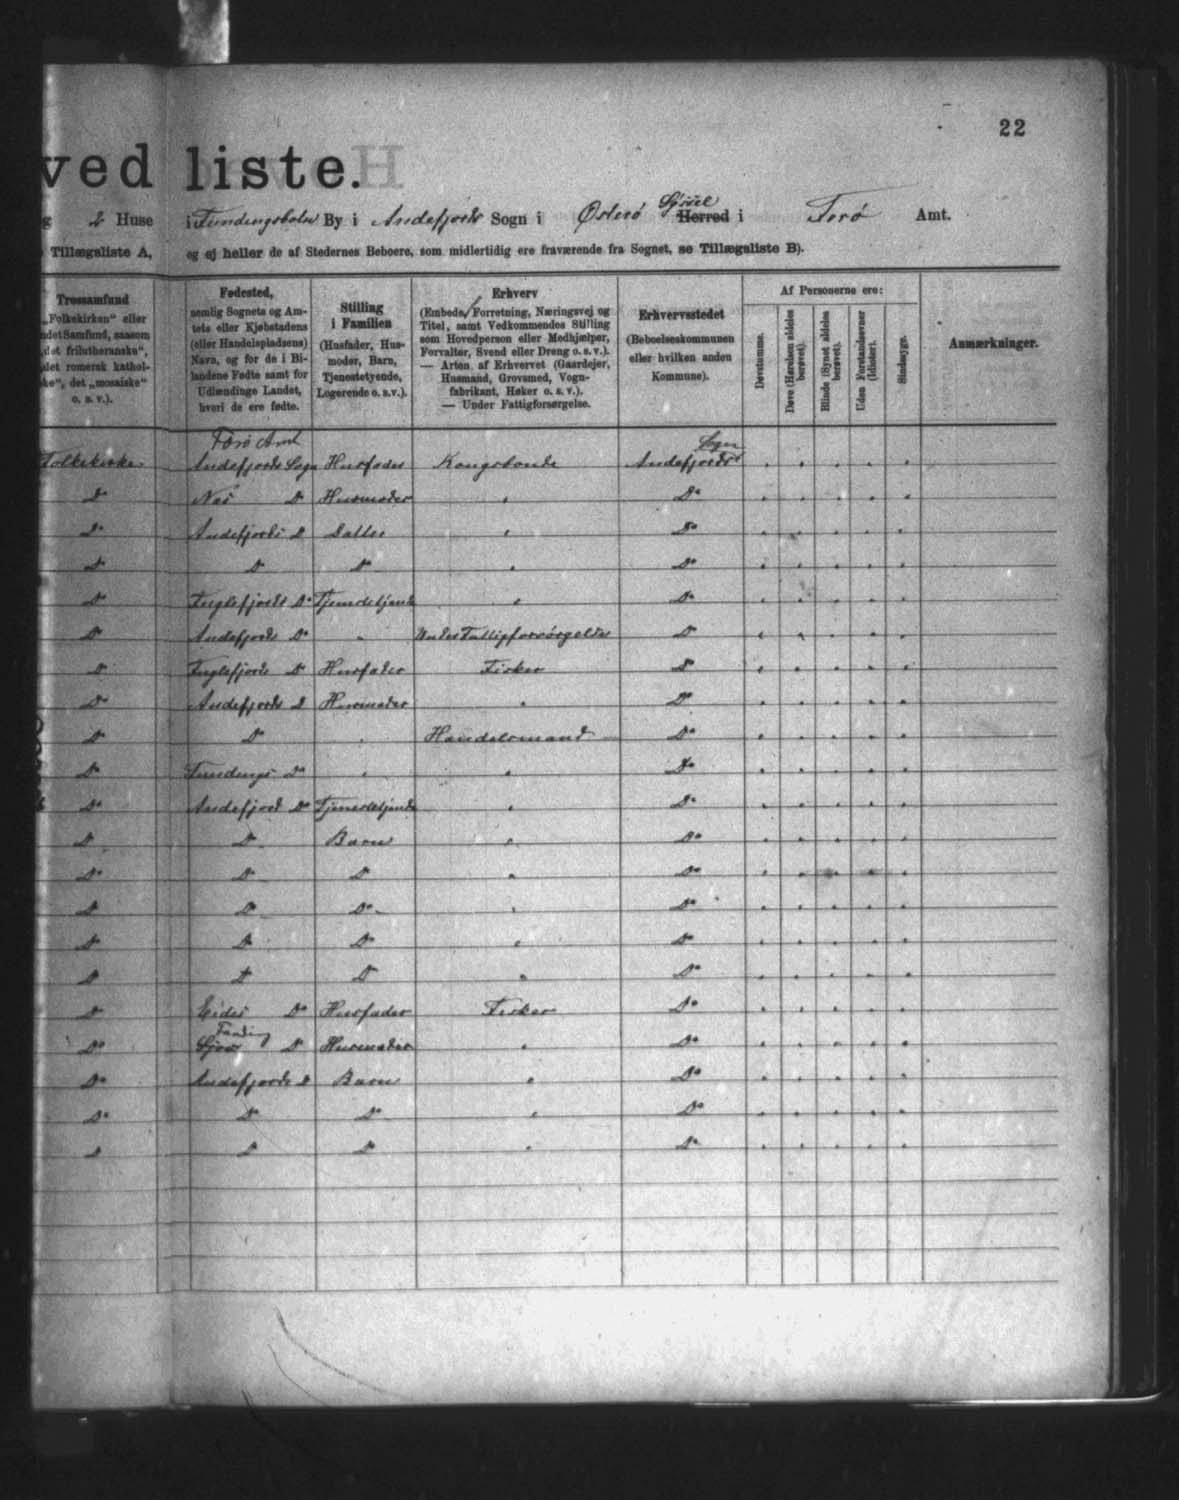 22
ved liste.
2 Huse i Fundingsbotn By i Andefjords Sogn i Østerø Syssel Herred i Færø Amt.
Tillægsliste A, og ej heller de af Stedernes Beboere, som midlertidig ere fraværende fra Sognet, se Tillægsliste B).
Trossamfund
„Folkekirken“ eller
andet Samfund, saasom
„det frilutheranske“,
det romersk kathol-
ske“, det „mosaiske“
o. s. v.).
Fødested,
nemlig Sognets og Am-
tets eller Kjøbstadens
(eller Handelspladsens)
Navn, og for de i Bi-
landene Fødte samt for
Udlændinge Landet,
hvori de ere fødte.
Stilling
i Familien
(Husfader, Hus-
moder, Barn,
Tjenestetyende,
Logerende o. s. v.).
Erhverv
(Embede, Forretning, Næringsvej og
Titel, samt Vedkommendes Stilling
som Hovedperson eller Medhjælper,
Forvalter, Svend eller Dreng o. s. v.).
— Arten af Erhvervet (Gaardejer,
Husmand, Grovsmed, Vogn-
fabrikant, Høker o. s. v.).
— Under Fattigforsørgelse.
Erhvervsstedet
(Beboelseskommunen
eller hvilken anden
Kommune).
Af Personerne ere:
Døvstumme.
Døve (Hørelsen aldeles berøvet).
Blinde (Synet aldeles berøvet).
Uden Forstandsevner (Idioter).
Sindssyge.
Anmærkninger.
Færø Amt Sogn
Folkekirke Andefjords Sogn Husfader Kongsbonde Andefjords
Do Nes Do Husmoder " Do
Do Andefjords Do Datter " Do
Do Do Do " Do
Do Fuglefjords Do Tjenestetjende " Do
Do Andefjords Do " Under Fattigforsørgelse Do
Do Fuglefjords Do Husfader Fisker Do
Do Andefjords Do Husmoder " Do
Do Do " Handelsmand Do
Do Fundings Do " " Do
Do Andefjord Do Tjenestetjende " Do
Do Do Barn " Do
Do Do Do " Do
Do Do Do " Do
Do Do Do " Do
Do Do Do " Do
Do Eides Do Husfader Fisker Do
Funding
Do Do Husmoder " Do
Do Andefjords Do Barn " Do
Do Do Do " Do
Do Do Do " Do